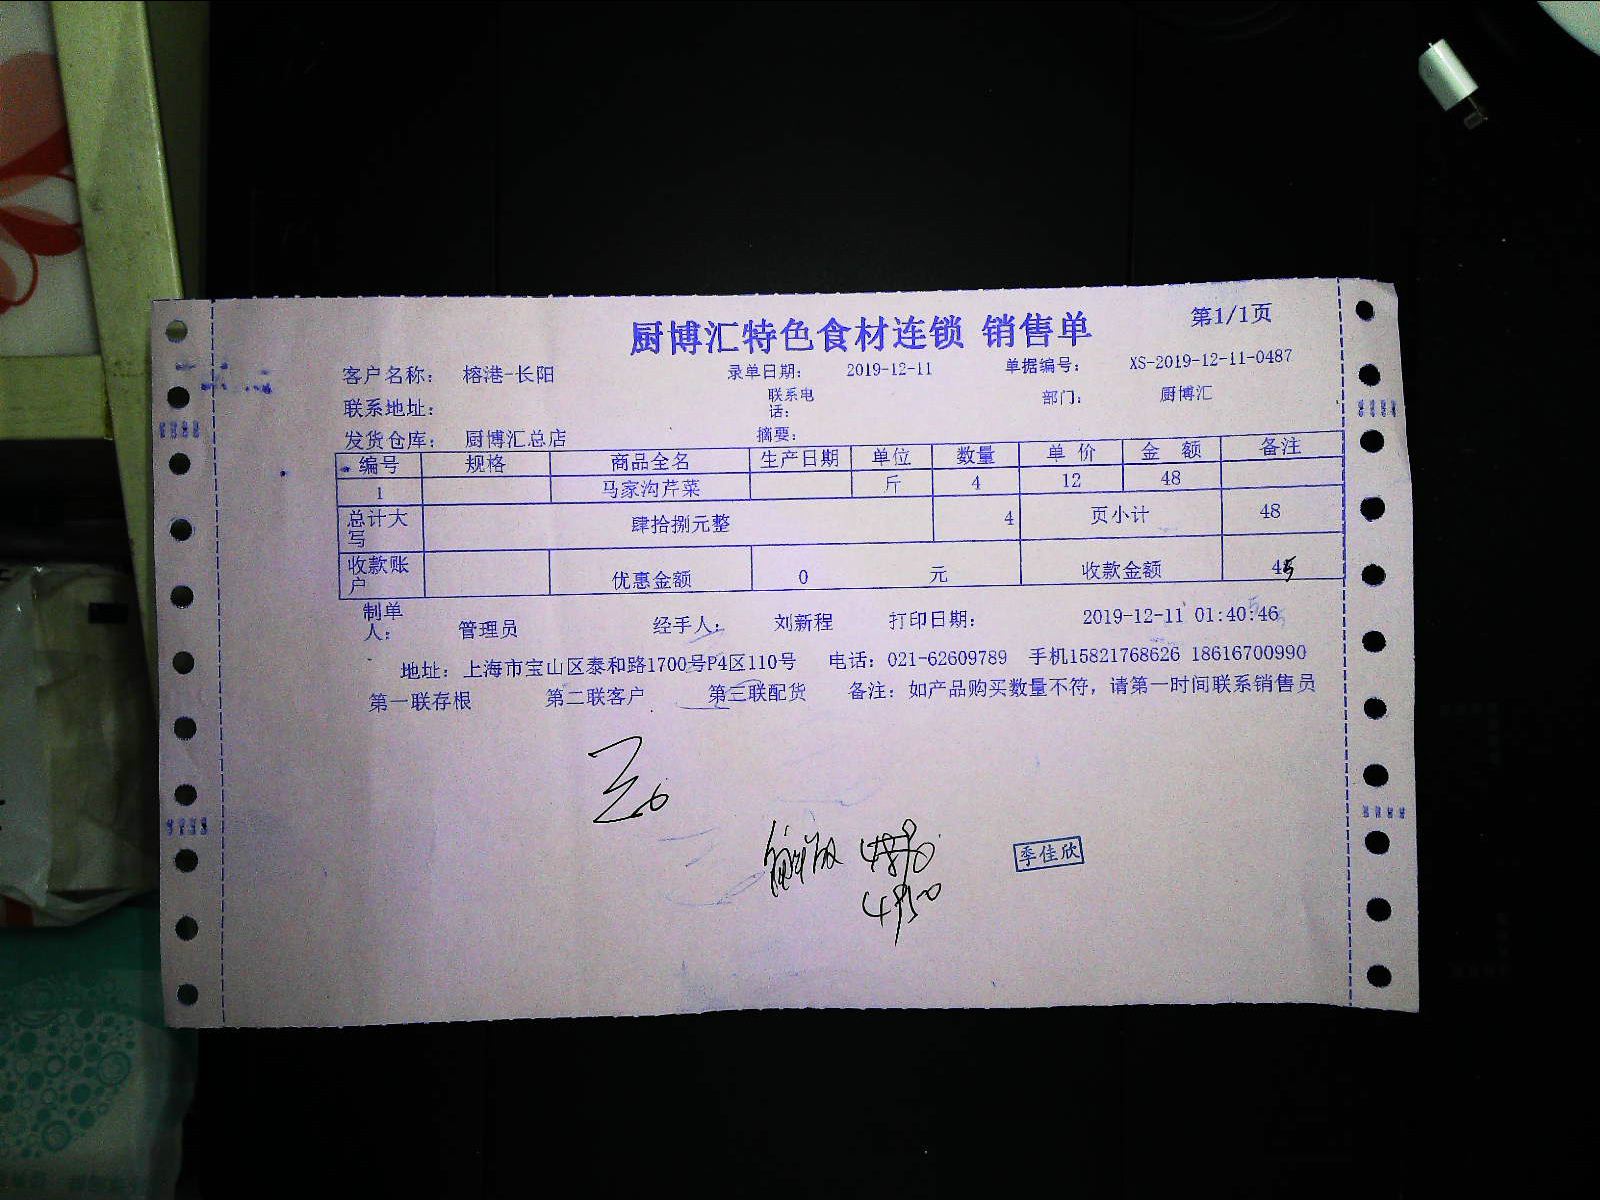 厨博汇特色食材连锁 销售单 第1/1页
客户名称： 榕港-长阳 录单日期： 2019-12-11 单据编号： XS-2019-12-11-0487
联系地址： 联系电话： 部门： 厨博汇
发货仓库： 厨博汇总店 摘要：
编号 规格 商品全名 生产日期 单位 数量 单价 金额 备注
1 马家沟芹菜 斤 4 12 48
总计大写 肆拾捌元整 4 页小计 48
收款账户 优惠金额 0 元 收款金额 45
制单人： 管理员 经手人： 刘新程 打印日期： 2019-12-11 01:40:46
地址：上海市宝山区泰和路1700号P4区110号 电话：021-62609789 手机15821768626 18616700990
第一联存根 第二联客户 第三联配货 备注：如产品购买数量不符，请第一时间联系销售员
季佳欣